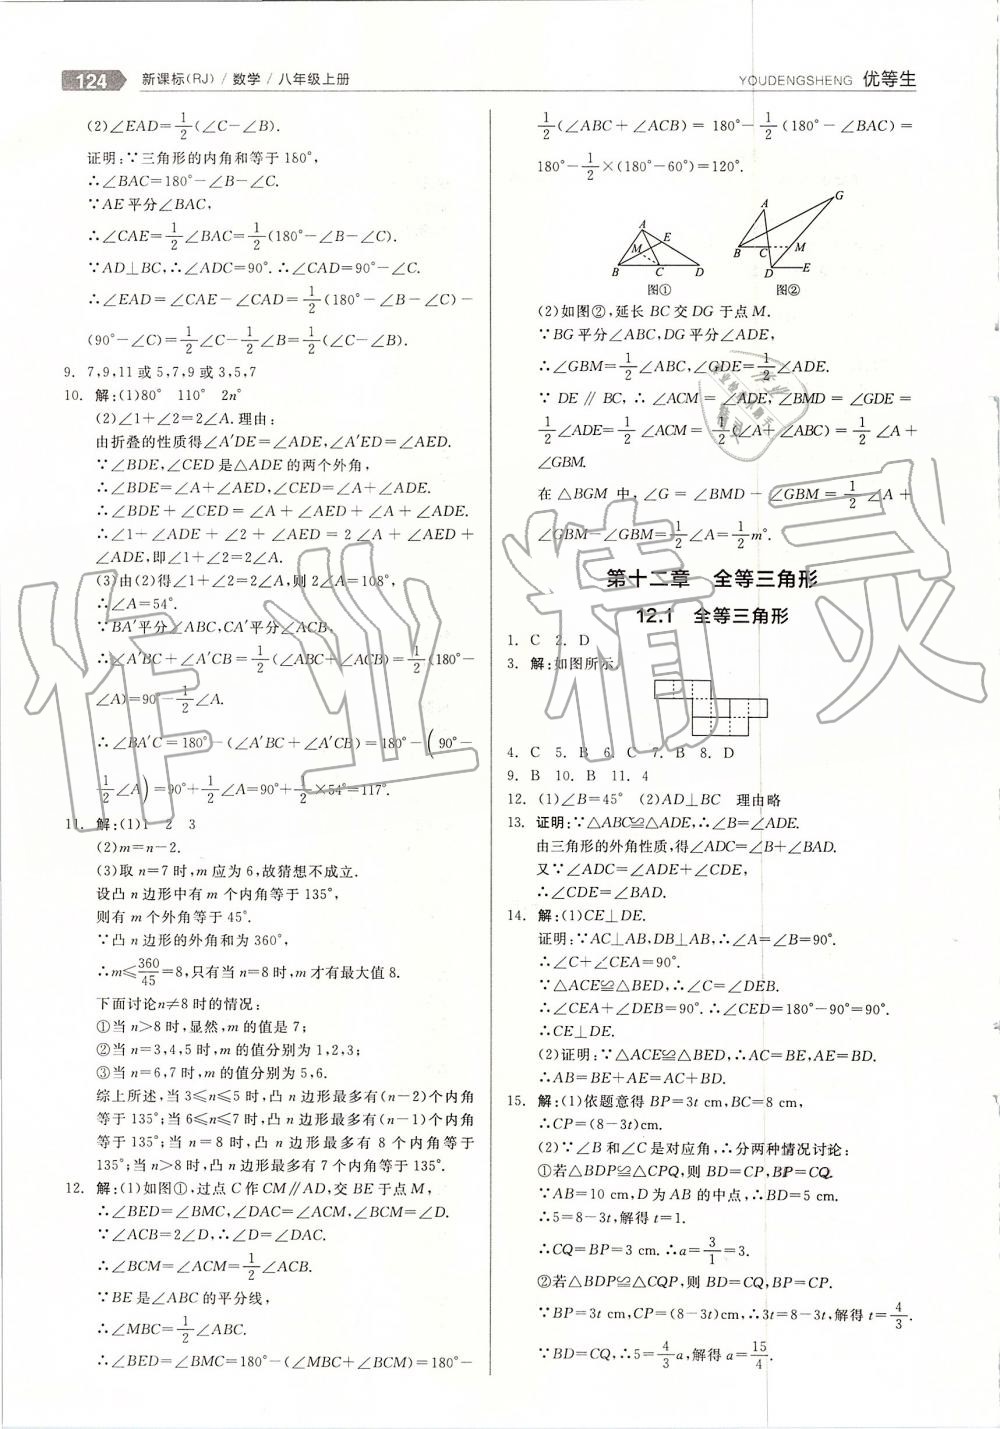 124 新课标(RJ) / 数学 / 八年级上册
YOUDENGSHENG 优等生
(2)∠EAD=1/2(∠C−∠B).
证明:∵三角形的内角和等于180°,
∴∠BAC=180°−∠B−∠C.
∵AE平分∠BAC,
∴∠CAE=1/2∠BAC=1/2(180°−∠B−∠C).
∵AD⊥BC,∴∠ADC=90°.∴∠CAD=90°−∠C.
∴∠EAD=∠CAE−∠CAD=1/2(180°−∠B−∠C)−
(90°−∠C)=1/2∠C−1/2∠B=1/2(∠C−∠B).
9. 7,9,11或5,7,9或3,5,7
10. 解:(1)80° 110° 2n°
(2)∠1+∠2=2∠A.理由:
由折叠的性质得∠A′DE=∠ADE,∠A′ED=∠AED.
∵∠BDE,∠CED是△ADE的两个外角,
∴∠BDE=∠A+∠AED,∠CED=∠A+∠ADE.
∴∠BDE+∠CED=∠A+∠AED+∠A+∠ADE.
∴∠1+∠ADE+∠2+∠AED=2∠A+∠AED+
∠ADE,即∠1+∠2=2∠A.
(3)由(2)得∠1+∠2=2∠A,则2∠A=108°,
∴∠A=54°.
∵BA′平分∠ABC,CA′平分∠ACB,
∴∠A′BC+∠A′CB=1/2(∠ABC+∠ACB)=1/2(180°−
∠A)=90°−1/2∠A.
∴∠BA′C=180°−(∠A′BC+∠A′CB)=180°−(90°−
1/2∠A)=90°+1/2∠A=90°+1/2×54°=117°.
11. 解:(1)1 2 3
(2)m=n−2.
(3)取n=7时,m应为6,故猜想不成立.
设凸n边形中有m个内角等于135°,
则有m个外角等于45°.
∵凸n边形的外角和为360°,
∴m≤360/45=8,只有当n=8时,m才有最大值8.
下面讨论n≠8时的情况:
①当n>8时,显然,m的值是7;
②当n=3,4,5时,m的值分别为1,2,3;
③当n=6,7时,m的值分别为5,6.
综上所述,当3≤n≤5时,凸n边形最多有(n−2)个内角
等于135°;当6≤n≤7时,凸n边形最多有(n−1)个内角
等于135°;当n=8时,凸n边形最多有8个内角等于
135°;当n>8时,凸n边形最多有7个内角等于135°.
12. 解:(1)如图①,过点C作CM∥AD,交BE于点M,
∴∠BED=∠BMC,∠DAC=∠ACM,∠BCM=∠D.
∵∠ACB=2∠D,∴∠D=∠DAC.
∴∠BCM=∠ACM=1/2∠ACB.
∵BE是∠ABC的平分线,
∴∠MBC=1/2∠ABC.
∴∠BED=∠BMC=180°−(∠MBC+∠BCM)=180°−
1/2(∠ABC+∠ACB)=180°−1/2(180°−∠BAC)=
180°−1/2×(180°−60°)=120°.
A E M B C D 图①
A G B C M D E 图②
(2)如图②,延长BC交DG于点M.
∵BG平分∠ABC,DG平分∠ADE,
∴∠GBM=1/2∠ABC,∠GDE=1/2∠ADE.
∵DE∥BC,∴∠ACM=∠ADE,∠BMD=∠GDE=
1/2∠ADE=1/2∠ACM=1/2(∠A+∠ABC)=1/2∠A+
∠GBM.
在△BGM中,∠G=∠BMD−∠GBM=1/2∠A+
∠GBM−∠GBM=1/2∠A=1/2m°.
第十二章 全等三角形
12.1 全等三角形
1. C 2. D
3. 解:如图所示
4. C 5. B 6. C 7. B 8. D
9. B 10. B 11. 4
12. (1)∠B=45° (2)AD⊥BC 理由略
13. 证明:∵△ABC≌△ADE,∴∠B=∠ADE.
由三角形的外角性质,得∠ADC=∠B+∠BAD.
又∵∠ADC=∠ADE+∠CDE,
∴∠CDE=∠BAD.
14. 解:(1)CE⊥DE.
证明:∵AC⊥AB,DB⊥AB,∴∠A=∠B=90°.
∴∠C+∠CEA=90°.
∵△ACE≌△BED,∴∠C=∠DEB.
∴∠CEA+∠DEB=90°.∴∠CED=180°−90°=90°.
∴CE⊥DE.
(2)证明:∵△ACE≌△BED,∴AC=BE,AE=BD.
∴AB=BE+AE=AC+BD.
15. 解:(1)依题意得BP=3t cm,BC=8 cm,
∴CP=(8−3t)cm.
(2)∵∠B和∠C是对应角,∴分两种情况讨论:
①若△BDP≌△CPQ,则BD=CP,BP=CQ.
∵AB=10 cm,D为AB的中点,∴BD=5 cm.
∴5=8−3t,解得t=1.
∴CQ=BP=3 cm.∴a=3/1=3.
②若△BDP≌△CQP,则BD=CQ,BP=CP.
∵BP=3t cm,CP=(8−3t)cm,∴3t=8−3t,解得t=4/3.
∵BD=CQ,∴5=4/3a,解得a=15/4.
作业精灵